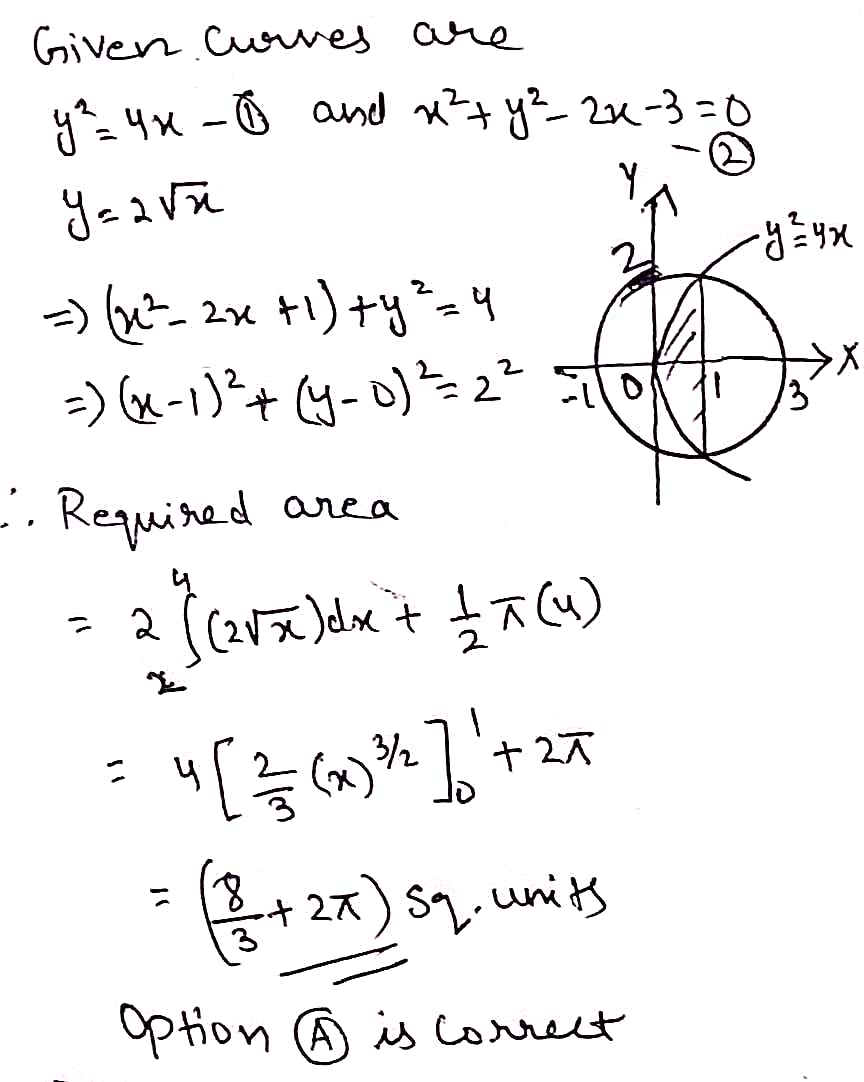 Given curves are
y² = 4x – ① and x² + y² – 2x – 3 = 0
– ②
y = 2√x
⇒ (x² – 2x + 1) + y² = 4
⇒ (x – 1)² + (y – 0)² = 2²
Y
y² = 4x
2
X
–1 0 1 3
∴ Required area
= 2 ∫ 4 (2√x) dx + 1/2 π (4)
= 4 [ 2/3 (x)^3/2 ]₀¹ + 2π
= ( 8/3 + 2π ) sq. units
Option Ⓐ is correct